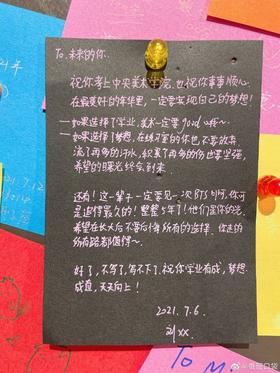 To.未来的你.
祝你考上中央美术学院,也祝你事事顺心,
在最美好的年华里,一定要实现自己的梦想!
—如果选择了学业,美术一定要good
—如果选择了梦想,在练习室的你也不要放弃
流了再多的汗水,积累了再多的伤也要坚强,
希望的曙光终会到来.
还有!这一辈子一定要见一次BTS啊,你可
是追得最久的!整整5年了!他们是你的光
希望在长大后不要后悔所有的选择,你走的
所有路都值得~
好了,不写了,写不下了.祝你学业有成,梦想
成真,天天向上!
2021.7.6
刘xx
To M